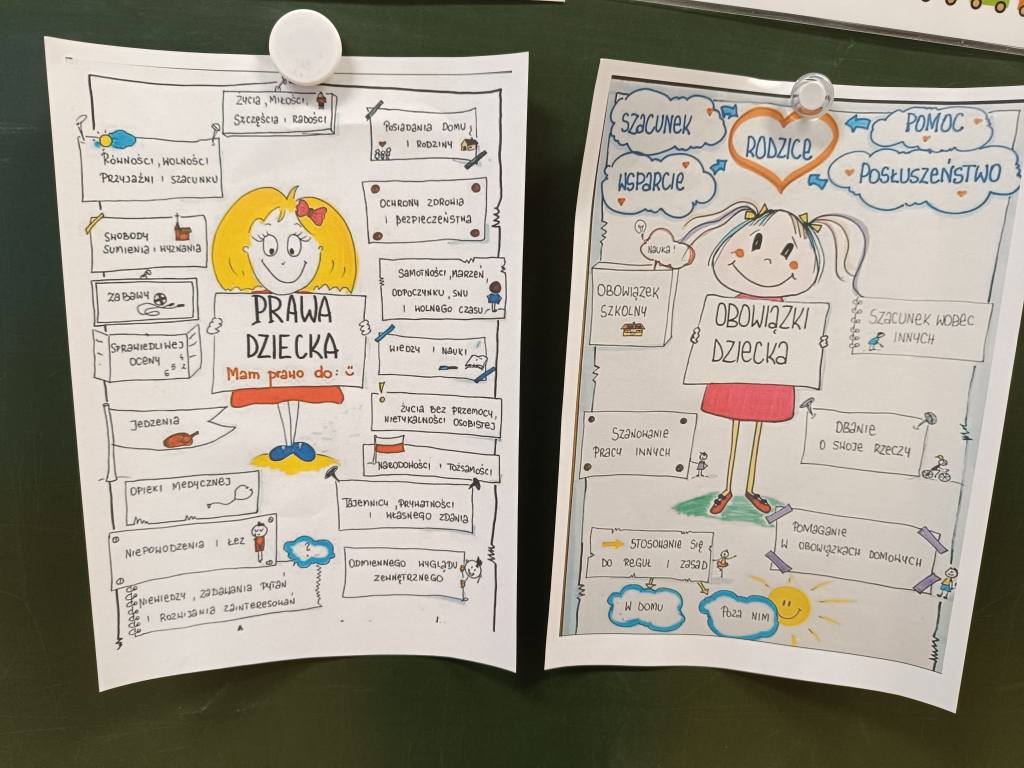 Życia, Miłości,
Szczęścia i Radości
Równości, wolności
Przyjaźni i szacunku
Posiadania Domu
i Rodziny
Swobody
sumienia i wyznania
Ochrony zdrowia
i bezpieczeństwa
Zabawy
Samotności, marzeń,
odpoczynku, snu
i wolnego czasu
Sprawiedliwej
oceny
6 5 4 2
Wiedzy i nauki
PRAWA
DZIECKA
Mam prawo do:
Jedzenia
Życia bez przemocy,
nietykalności osobistej
Narodowości i Tożsamości
Opieki medycznej
Tajemnicy, prywatności
i własnego zdania
Niepowodzenia i łez
?
Odmiennego wyglądu
zewnętrznego
Niewiedzy, zadawania pytań
i rozwijania zainteresowań
SZACUNEK
WSPARCIE
RODZICE
POMOC
POSŁUSZEŃSTWO
Nauka!
Obowiązek
szkolny
OBOWIĄZKI
DZIECKA
Szacunek wobec
innych
Szanowanie
pracy innych
Dbanie
o swoje rzeczy
Pomaganie
w obowiązkach domowych
Stosowanie się
do reguł i zasad
W domu
Poza nim